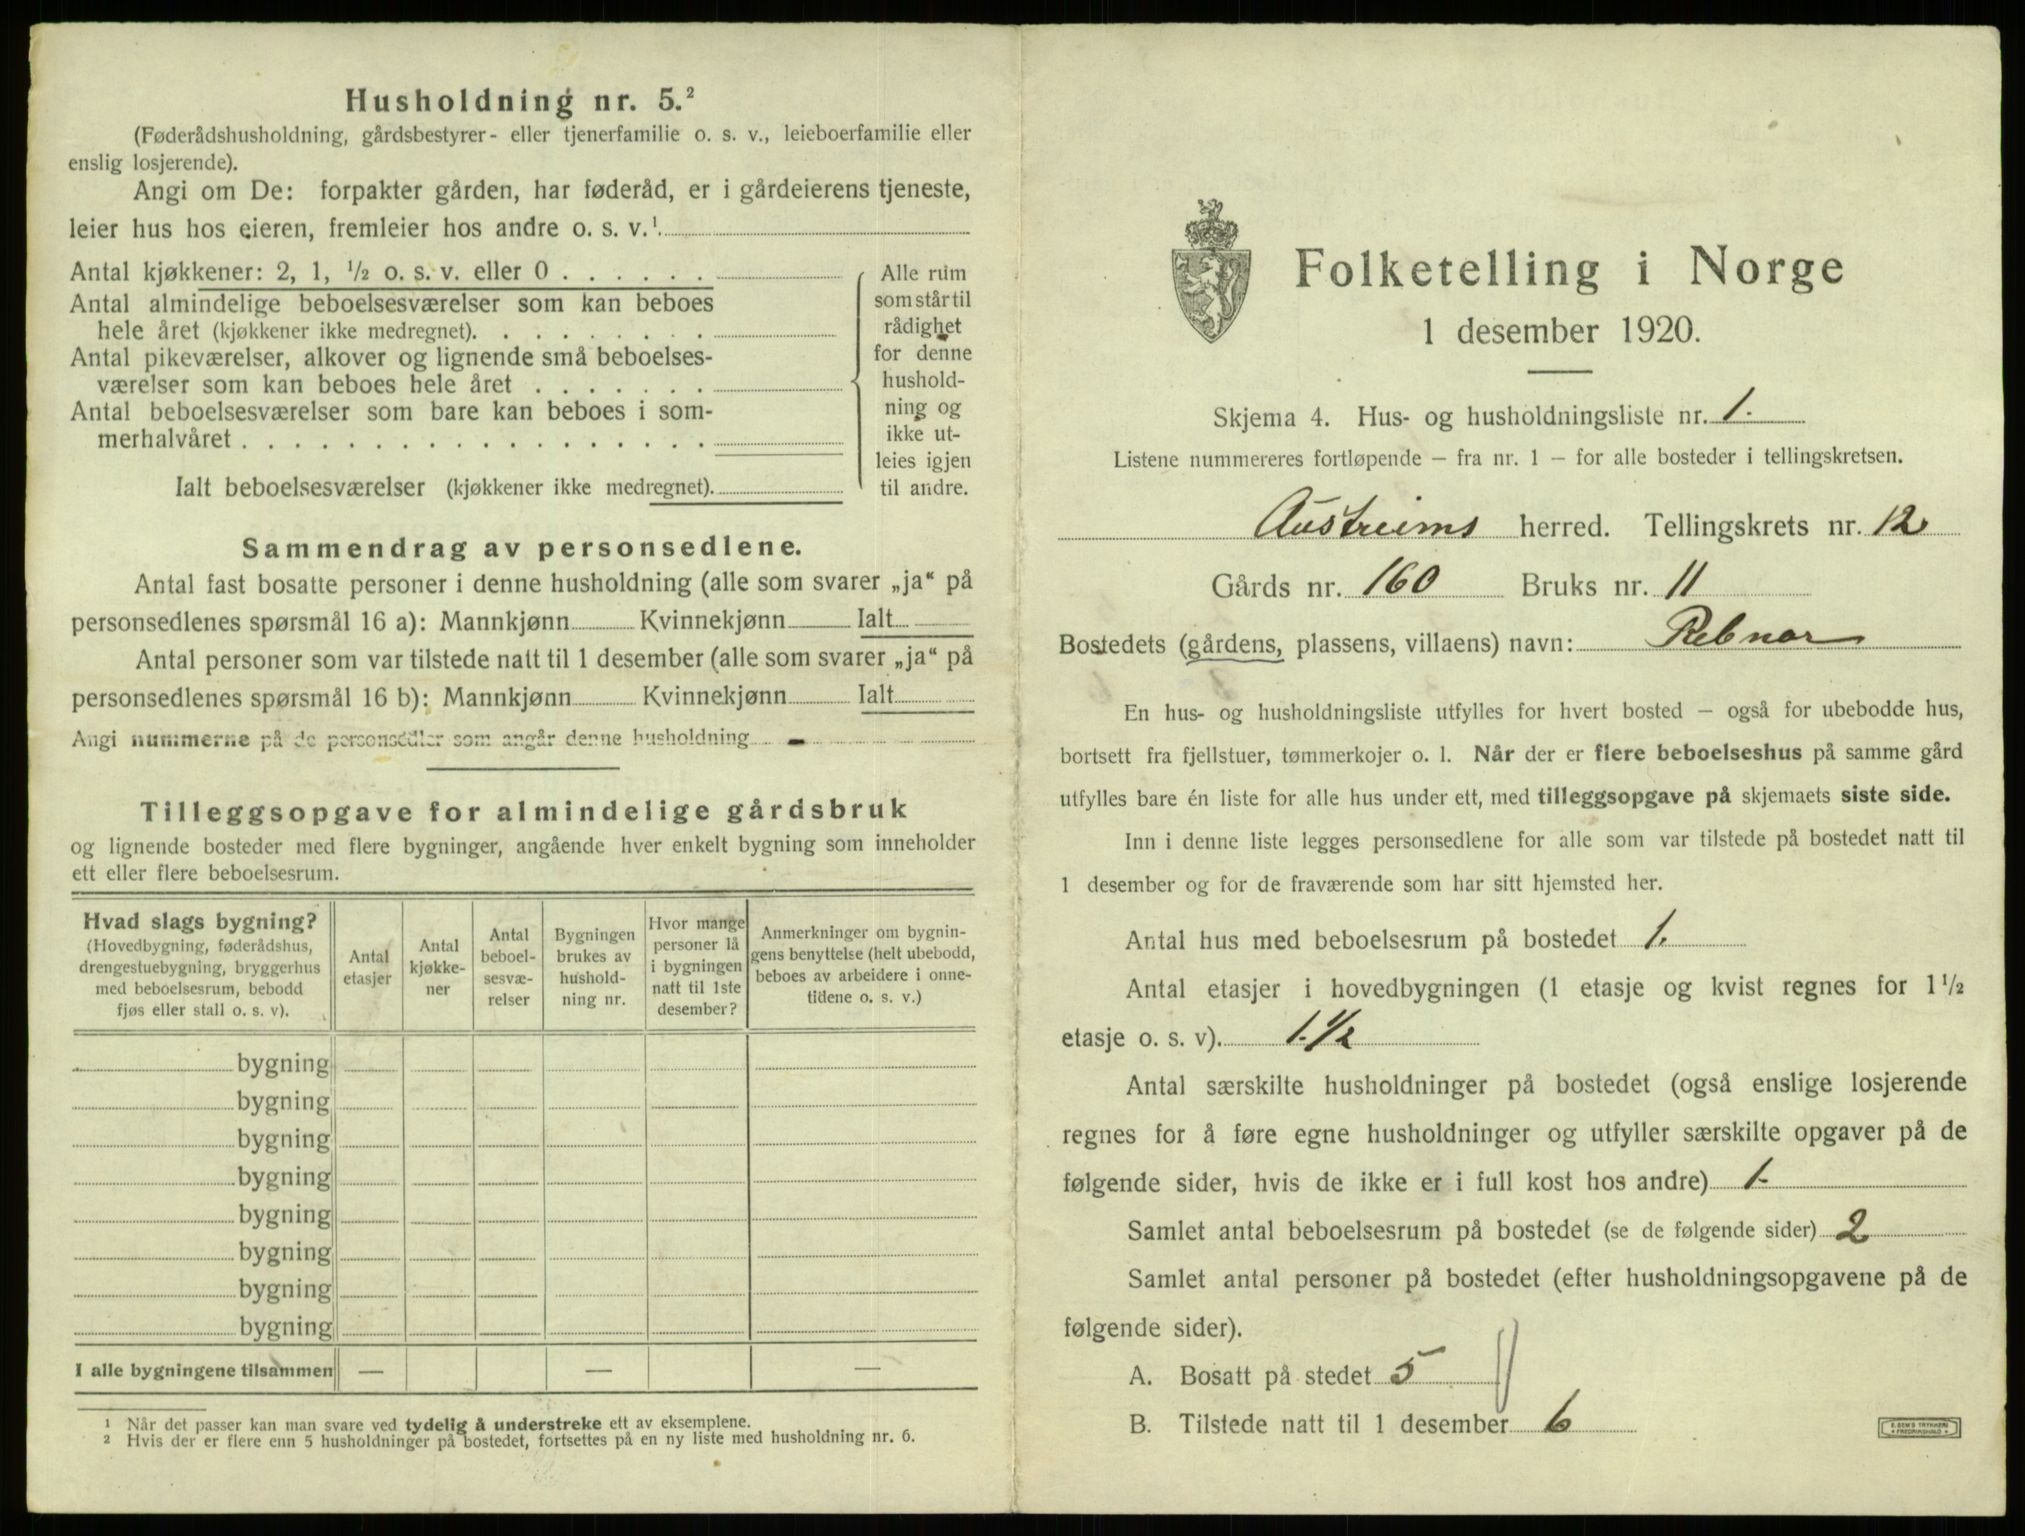 Husholdning nr. 5.²
(Føderådshusholdning, gårdsbestyrer- eller tjenerfamilie o. s. v., leieboerfamilie eller
enslig losjerende).
Angi om De: forpakter gården, har føderåd, er i gårdeierens tjeneste,
leier hus hos eieren, fremleier hos andre o. s. v.¹
Antal kjøkkener: 2, 1, ½ o. s. v. eller 0 . . . . . .
Antal almindelige beboelsesværelser som kan beboes
hele året (kjøkkener ikke medregnet). . . . . . . . .
Antal pikeværelser, alkover og lignende små beboelses-
værelser som kan beboes hele året . . . . . . .
Antal beboelsesværelser som bare kan beboes i som-
merhalvåret . . . . . . . . . . . . . . . . . .
Ialt beboelsesværelser (kjøkkener ikke medregnet).
Alle rum
som står til
rådighet
for denne
hushold-
ning og
ikke ut-
leies igjen
til andre.
Sammendrag av personsedlene.
Antal fast bosatte personer i denne husholdning (alle som svarer „ja“ på
personsedlenes spørsmål 16 a): Mannkjønn Kvinnekjønn Ialt
Antal personer som var tilstede natt til 1 desember (alle som svarer „ja“ på
personsedlenes spørsmål 16 b): Mannkjønn Kvinnekjønn Ialt
Angi nummerne på de personsedler som angår denne husholdning
Tilleggsopgave for almindelige gårdsbruk
og lignende bosteder med flere bygninger, angående hver enkelt bygning som inneholder
ett eller flere beboelsesrum.
Hvad slags bygning?
(Hovedbygning, føderådshus,
drengestuebygning, bryggerhus
med beboelsesrum, bebodd
fjøs eller stall o. s. v).
Antal
etasjer
Antal
kjøkke-
ner
Antal
beboel-
sesvæ-
relser
Bygningen
brukes av
hushold-
ning nr.
Hvor mange
personer lå
i bygningen
natt til 1ste
desember?
Anmerkninger om bygnin-
gens benyttelse (helt ubebodd,
beboes av arbeidere i onne-
tidene o. s. v.)
bygning
bygning
bygning
bygning
bygning
bygning
bygning
bygning
I alle bygningene tilsammen — — —
¹ Når det passer kan man svare ved tydelig å understreke ett av eksemplene.
² Hvis der er flere enn 5 husholdninger på bostedet, fortsettes på en ny liste med husholdning nr. 6.
Folketelling i Norge
1 desember 1920.
Skjema 4. Hus- og husholdningsliste nr. 1.
Listene nummereres fortløpende – fra nr. 1 – for alle bosteder i tellingskretsen.
Austreims herred. Tellingskrets nr. 12
Gårds nr. 160 Bruks nr. 11
Bostedets (gårdens, plassens, villaens) navn: Rebnor
En hus- og husholdningsliste utfylles for hvert bosted – også for ubebodde hus,
bortsett fra fjellstuer, tømmerkojer o. l. Når der er flere beboelseshus på samme gård
utfylles bare én liste for alle hus under ett, med tilleggsopgave på skjemaets siste side.
Inn i denne liste legges personsedlene for alle som var tilstede på bostedet natt til
1 desember og for de fraværende som har sitt hjemsted her.
Antal hus med beboelsesrum på bostedet 1.
Antal etasjer i hovedbygningen (1 etasje og kvist regnes for 1½
etasje o. s. v). 1.1/2
Antal særskilte husholdninger på bostedet (også enslige losjerende
regnes for å føre egne husholdninger og utfyller særskilte opgaver på de
følgende sider, hvis de ikke er i full kost hos andre) 1.
Samlet antal beboelsesrum på bostedet (se de følgende sider) 2
Samlet antal personer på bostedet (efter husholdningsopgavene på de
følgende sider).
A. Bosatt på stedet 5
B. Tilstede natt til 1 desember 6
E. SEM'S TRYKKERI
• FREDRIKSHALD •